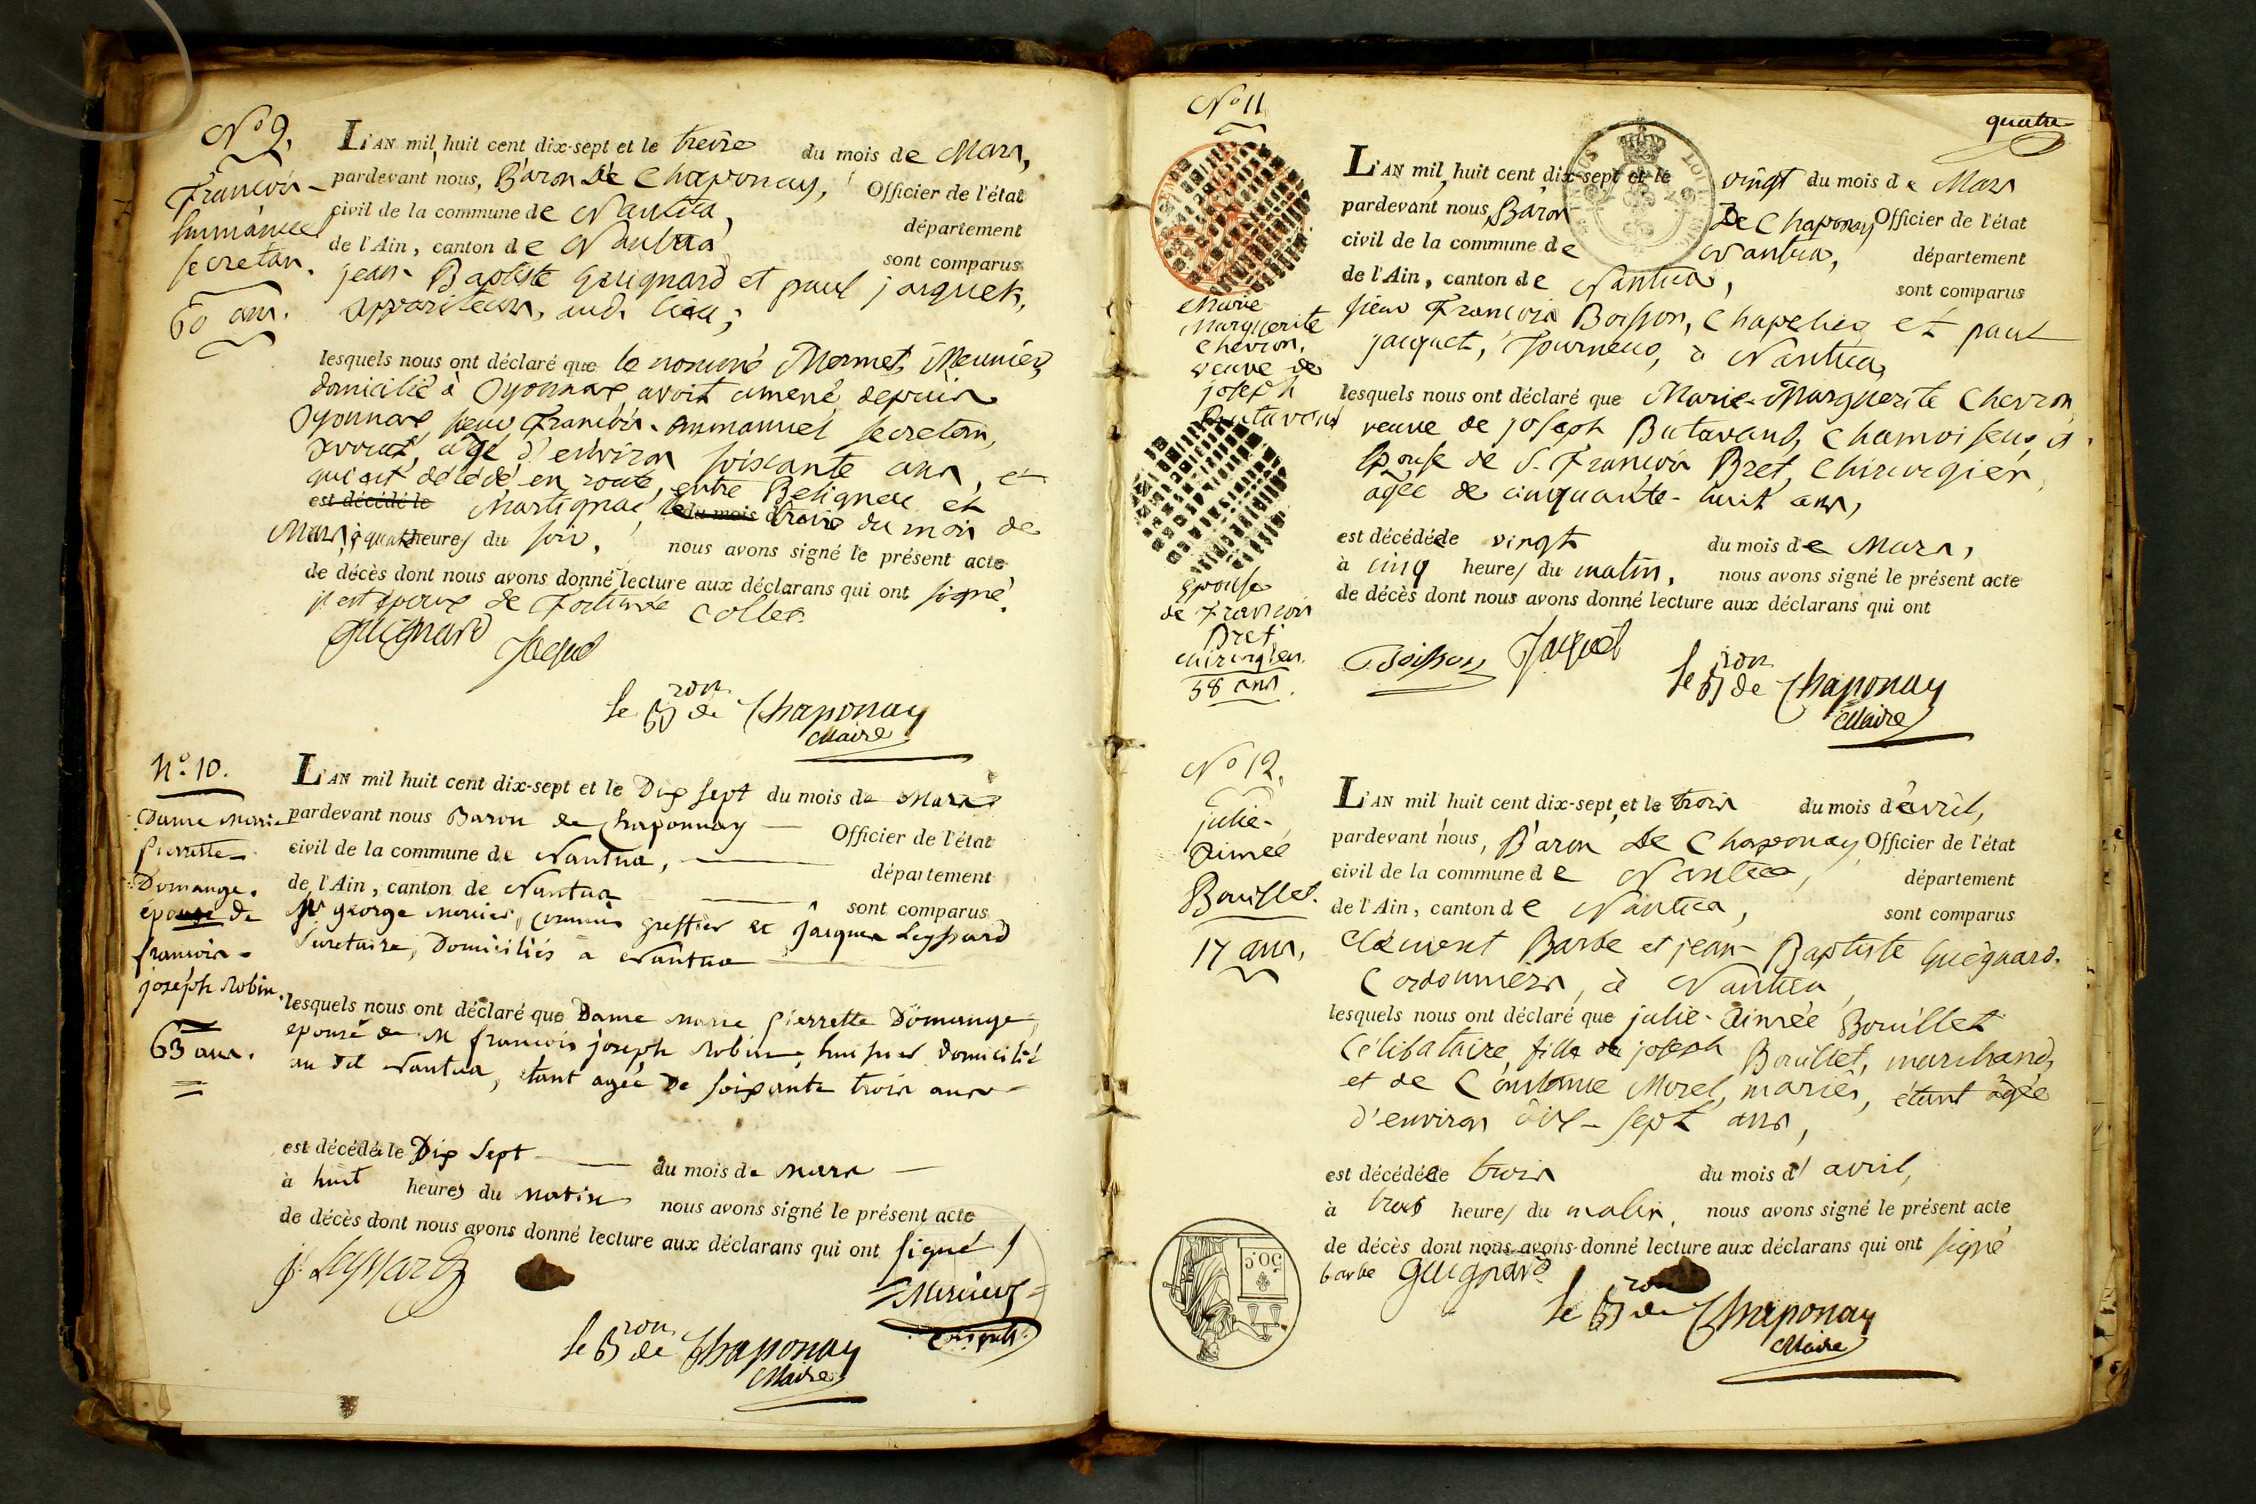 N° 9.
François-
Emmanuel
Secretan.
60 ans.
L'AN mil huit cent dix-sept et le treize du mois de Mars,
pardevant nous, Baron de Chaponay, Officier de l'état
civil de la commune de Nantua, département
de l'Ain, canton de Nantua sont comparus
jean-Baptiste Guignard et paul jacquet,
appariteurs, aud. lieu;
lesquels nous ont déclaré que le nommé Mermet, Meunier,
domicilié à Oyonnax, avoit amené depuis
Oyonnax sieur François-Emmanuel Secretan,
avocat, âgé d'environ soixante ans, et
qui est décédé en route, entre Beligneu et
est décédé le Martignat, le du mois trois du mois de
Mars, à quatre heures du soir, nous avons signé le présent acte
de décès dont nous avons donné lecture aux déclarans qui ont signé.
il est époux de Fortunée Collet.
Guignard Jaquet
le Bron de Chaponay
Maire
N.° 10.
Dame Marie
Pierrette
Domange.
épouse de
françois-
joséph Robin.
63 ans.
L'AN mil huit cent dix-sept et le Dix sept du mois de Mars
pardevant nous Baron de Chaponnay Officier de l'état
civil de la commune de Nantua, département
de l'Ain, canton de Nantua sont comparus
Mr george Mercier, Commis greffier et Jacques Leyssard
Secretaire, Domiciliés a Nantua
lesquels nous ont déclaré que Dame Marie Pierrette Domange,
epouse de M françois joseph Robin huissier domicilié
au dit Nantua, etant agée De soixante trois ans
est décédée le Dix Sept du mois de Mars
à huit heures du Matin nous avons signé le présent acte
de décès dont nous avons donné lecture aux déclarans qui ont signé
J. Leyssard
Mercier
le Bron de Chaponay
Maire
quatre
N° 11
Marie
Marguerite
Chevron,
veuve de
joseph
Butavand
Epouse
de François
Bret,
chirurgien.
58 ans.
L'AN mil huit cent dix-sept et le vingt du mois de Mars
pardevant nous, Baron De Chaponay Officier de l'état
civil de la commune de Nantua, département
de l'Ain, canton de Nantua, sont comparus
sieur François Boisson, Chapelier et paul
jacquet, Tourneur, à Nantua,
lesquels nous ont déclaré que Marie-Marguerite Chevron
veuve de joseph Butavand, Chamoiseur, et
Epouse de S. François Bret, Chirurgien,
âgée de cinquante-huit ans,
est décédée le vingt du mois de Mars,
à cinq heures du matin, nous avons signé le présent acte
de décès dont nous avons donné lecture aux déclarans qui ont
Boisson Jaquet
le Bron de Chaponay
Maire
N° 12.
julie-
Aimée
Bouillet.
17 ans,
L'AN mil huit cent dix-sept et le trois du mois d'avril,
pardevant nous, Baron De Chaponay Officier de l'état
civil de la commune de Nantua, département
de l'Ain, canton de Nantua, sont comparus
Clément Barbe et jean-Baptiste Guignard.
Cordonniers, à Nantua,
lesquels nous ont déclaré que julie-Aimée Bouillet
Célibataire, fille de joseph Bouillet, marchand,
et de Constance Morel, mariés, étant âgée
d'environ dix-sept ans,
est décédée le trois du mois d'avril,
à trois heures du matin, nous avons signé le présent acte
de décès dont nous avons donné lecture aux déclarans qui ont signé
barbe Guignard
le Bron de Chaponay
Maire
50 C.